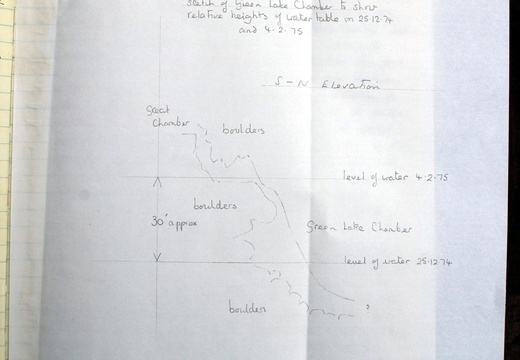 sketch of Green Lake Chamber to show
relative heights of water table on 25.12.74
and 4.2.75
S-N Elevation
Great
Chamber
boulders
level of water 4.2.75
boulders
30' approx
Green Lake Chamber
level of water 25.12.74
?
boulders